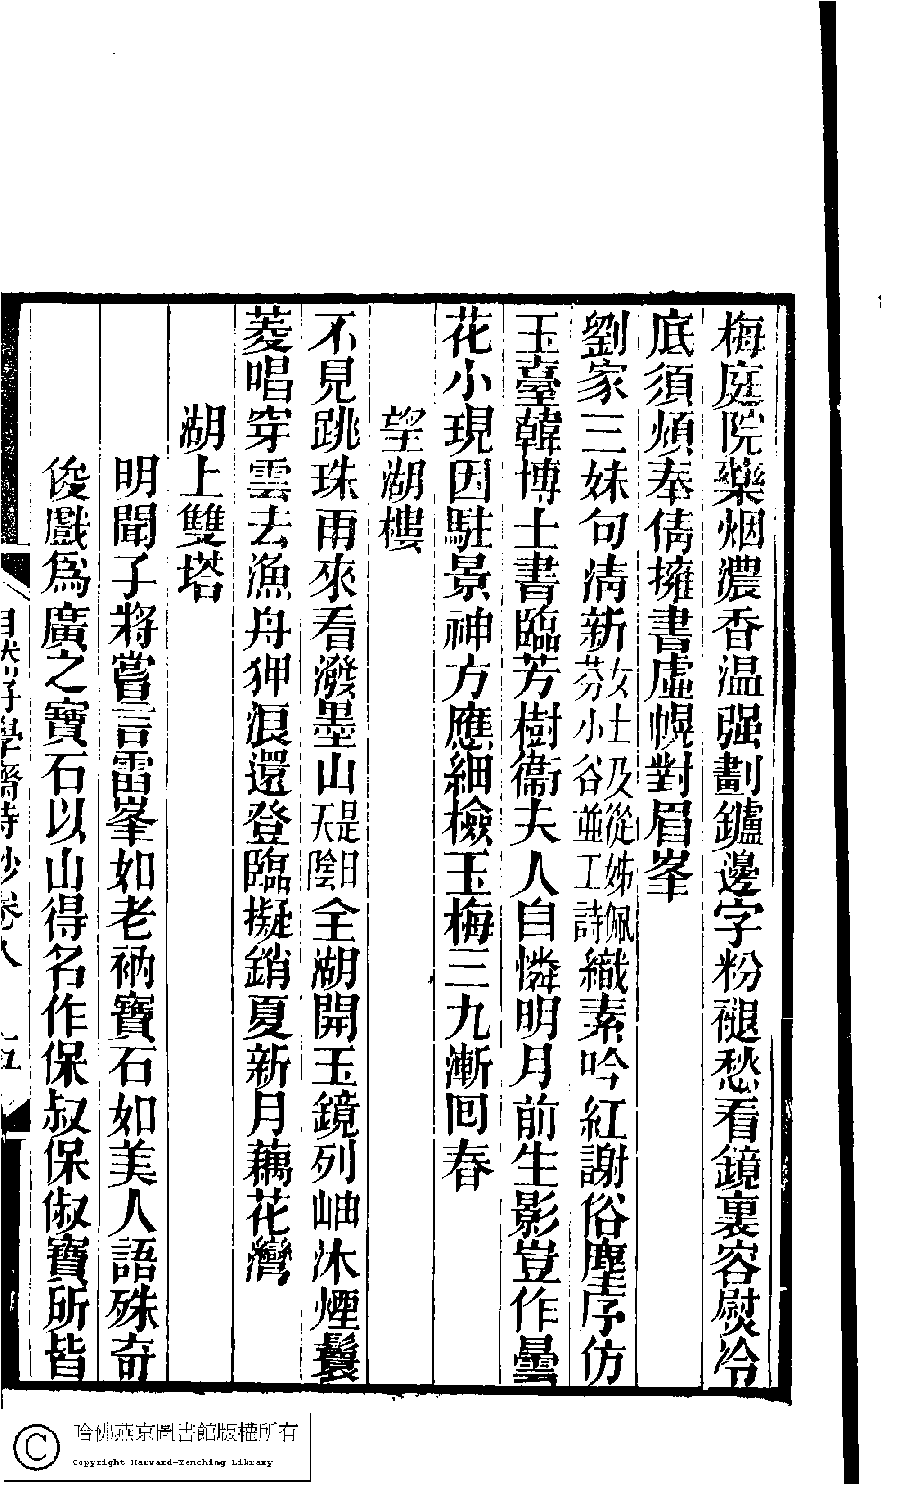 梅庭院藥烟濃香温强劃鑪邊字粉褪愁看鏡裏容熨冷
底須煩奉倩擁書虛幌對眉峯
劉家三妹句淸新女士及從姊佩芬小谷並工詩織素吟紅謝俗塵序仿
玉臺韓博士書臨芳樹衞夫人自憐明月前生影豈作曇
花小現因駐景神方應細檢玉梅三九漸回春
望湖樓
不見跳珠雨來看潑墨山是日天陰全湖開玉鏡列岫沐煙鬟
菱唱穿雲去漁舟狎浪還登臨擬銷夏新月藕花灣
湖上雙塔
明聞子將嘗言雷峯如老衲寶石如美人語殊奇
俊戲爲廣之寶石以山得名作保叔保俶寶所皆
學齋詩鈔卷八
哈佛燕京圖書館版權所有
Copyright Harvard-Yenching Library